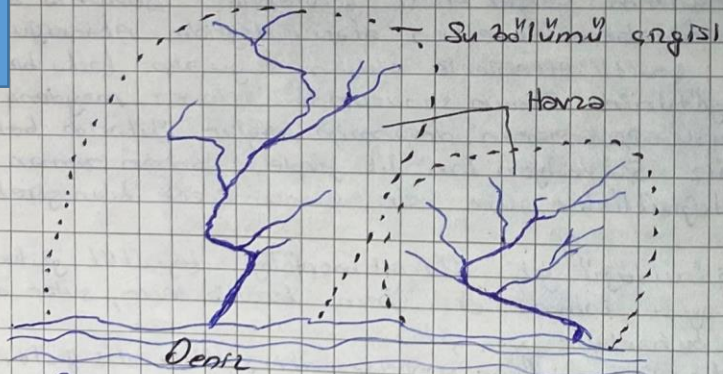 Su bölümü çizgisi
Havza
Deniz